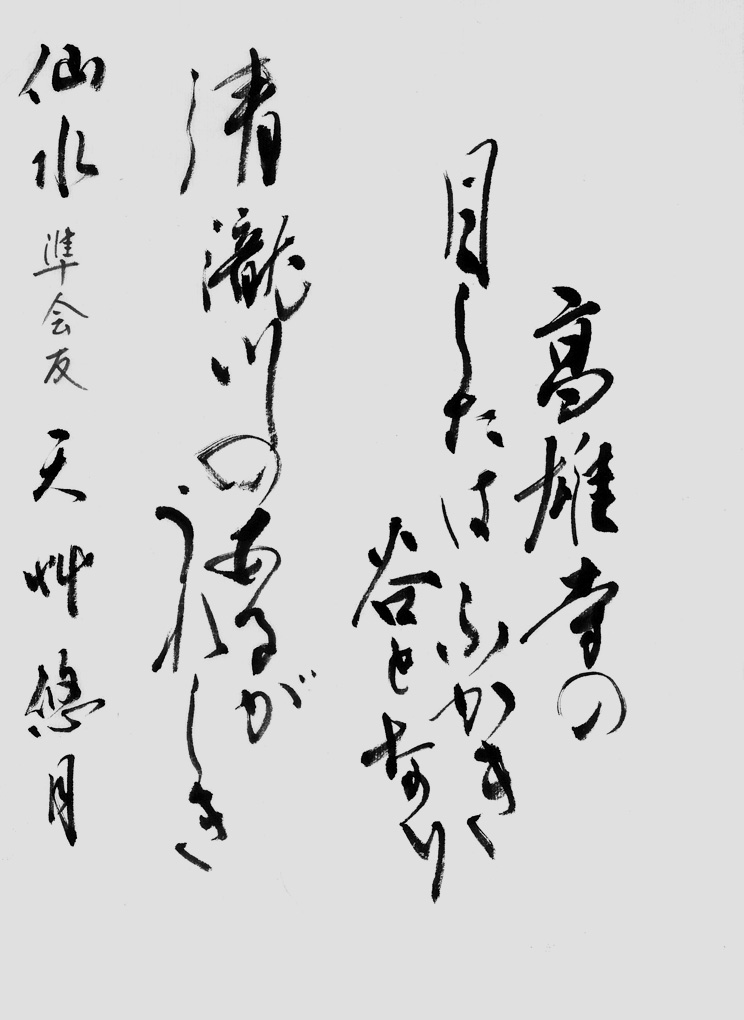 高雄寺の
目したはふかき
谷となり
清瀧川の
あるが
うれしき
仙水 準会友 天艸悠月